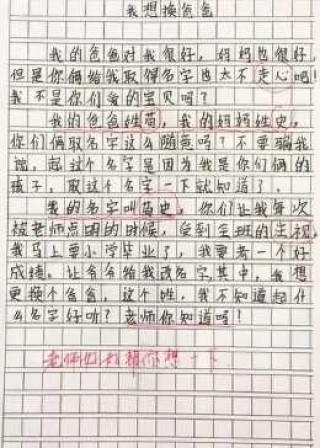 我想换爸爸
我的爸爸对我很好，妈妈也很好，
但是你俩给我取得名字也太不走心吧！
我不是你们爱的宝贝吗？
我的爸爸姓苟，我的妈妈姓史，
你们俩取名字这么随意吗？不要骗我
说，起这个名字是因为我是你们俩的
孩子，取这个名字一下就知道了。
我的名字叫苟史，你们让我每次
被老师点的时候，受到全班的注视，
我马上要小学毕业了，我要考一个好
成绩。让爷爷给我改名字其中，我想
更换个爸爸，这个姓，我不知道起什
么名字好听？老师你知道吗？
老师也好帮你想一下